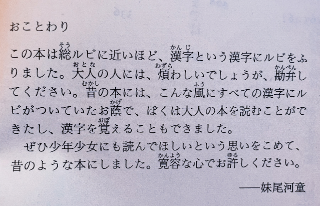 おことわり
この本は総ルビに近いほど、漢字という漢字にルビをふ
りました。大人の人には、煩わしいでしょうが、勘弁し
てください。昔の本には、こんな風にすべての漢字にル
ビがついていたお蔭で、ぼくは大人の本を読むことがで
きたし、漢字を覚えることもできました。
ぜひ少年少女にも読んでほしいという思いをこめて、
昔のような本にしました。寛容な心でお許しください。
——妹尾河童